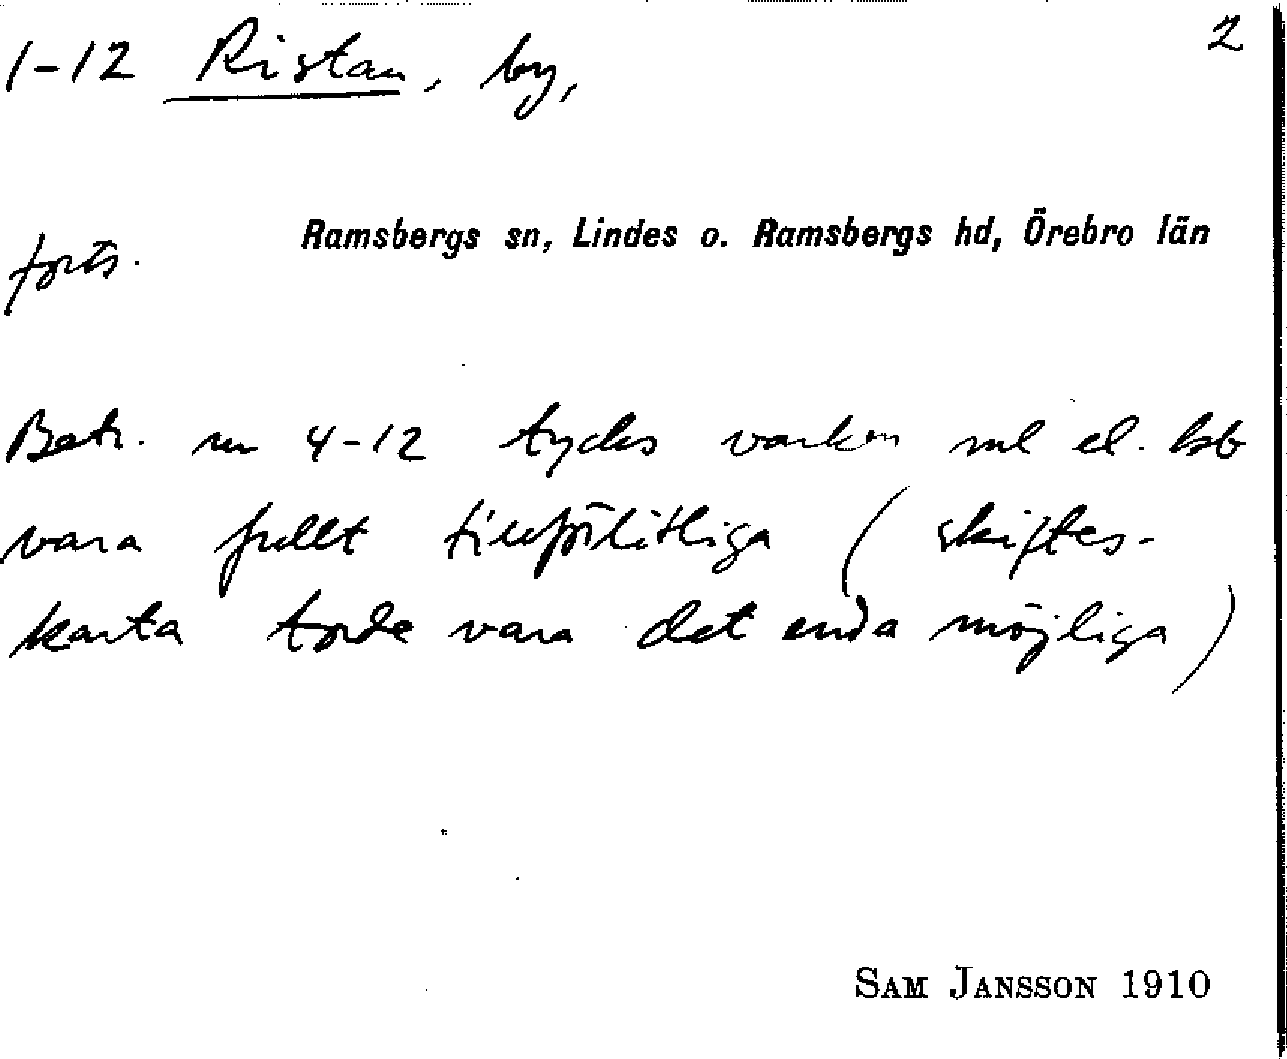 1-12 Ristan, by, 2
Ramsbergs sn, Lindes o. Ramsbergs hd, Örebro län
forts.
Betr. nr 4-12 tycks varken ml el. lsb
vara fullt tillförlitliga (skiftes-
karta torde vara det enda möjliga)
SAM JANSSON 1910